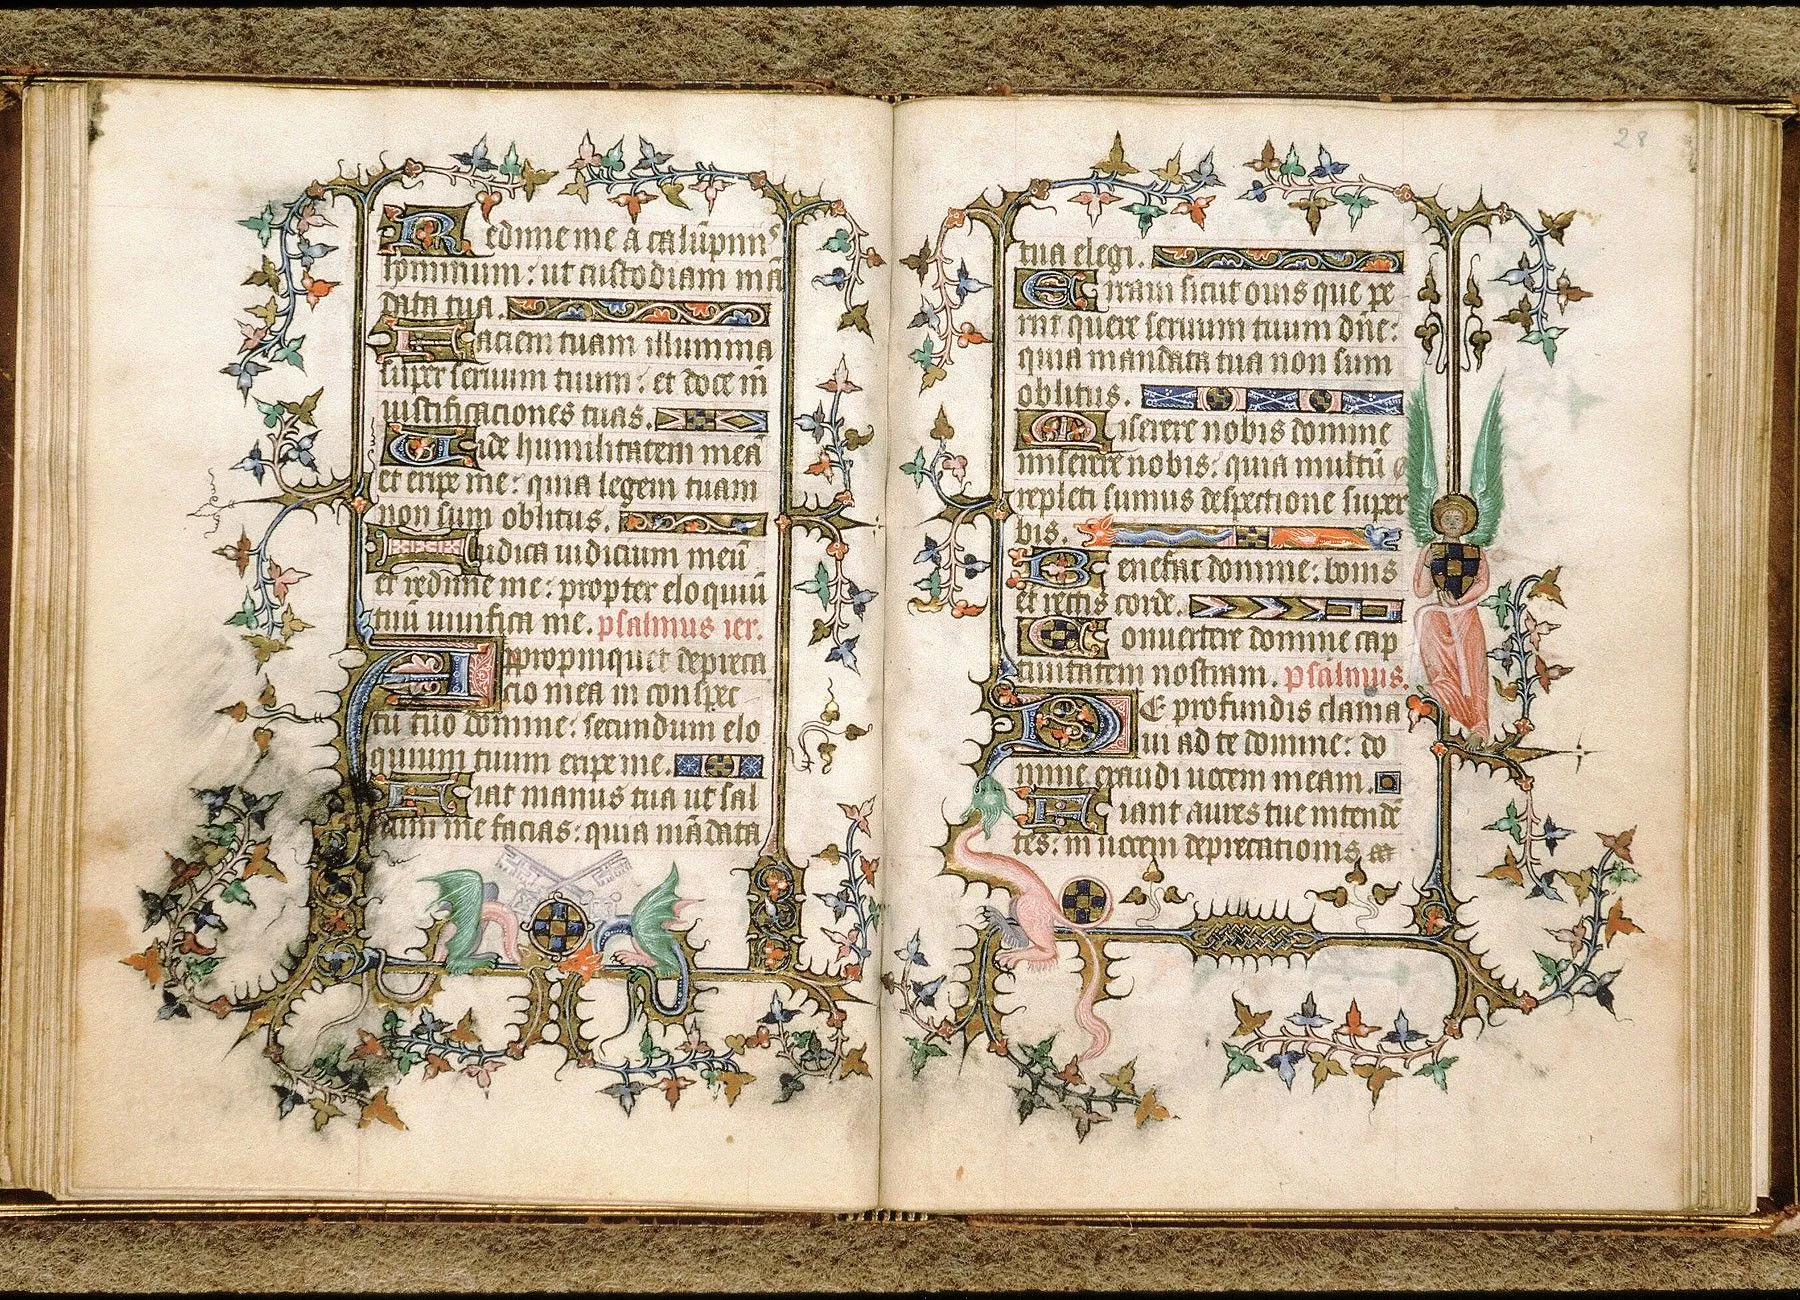 Redime me a calūpniis
hominum: ut custodiam mā
data tua.
Faciem tuam illumina
super seruum tuum: et doce m̄
iustificaciones tuas.
Uide humilitatem meā
et eripe me: quia legem tuam
non sum oblitus.
Iudica iudicium meū
et redime me: propter eloquiū
tuū uiuifica me. psalmus ier.
Appropinquet depreca
cio mea in conspec
tu tuo domine: secundum elo
quium tuum eripe me.
Fiat manus tua ut sal
uum me facias: quia mādata
28
tua elegi.
Erraui sicut ouis que pe
riit quere seruum tuum dn̄e:
quia mandata tua non sum
oblitus.
Miserere nobis domine
miserere nobis: quia multū
repleti sumus despectione super
bis.
Benefac domine: bonis
et rectis corde.
Conuertere domine cap
tiuitatem nostram. psalmus.
DE profundis clama
ui ad te domine: do
mine exaudi uocem meam.
Fiant aures tue intendē
tes: in uocem deprecationis